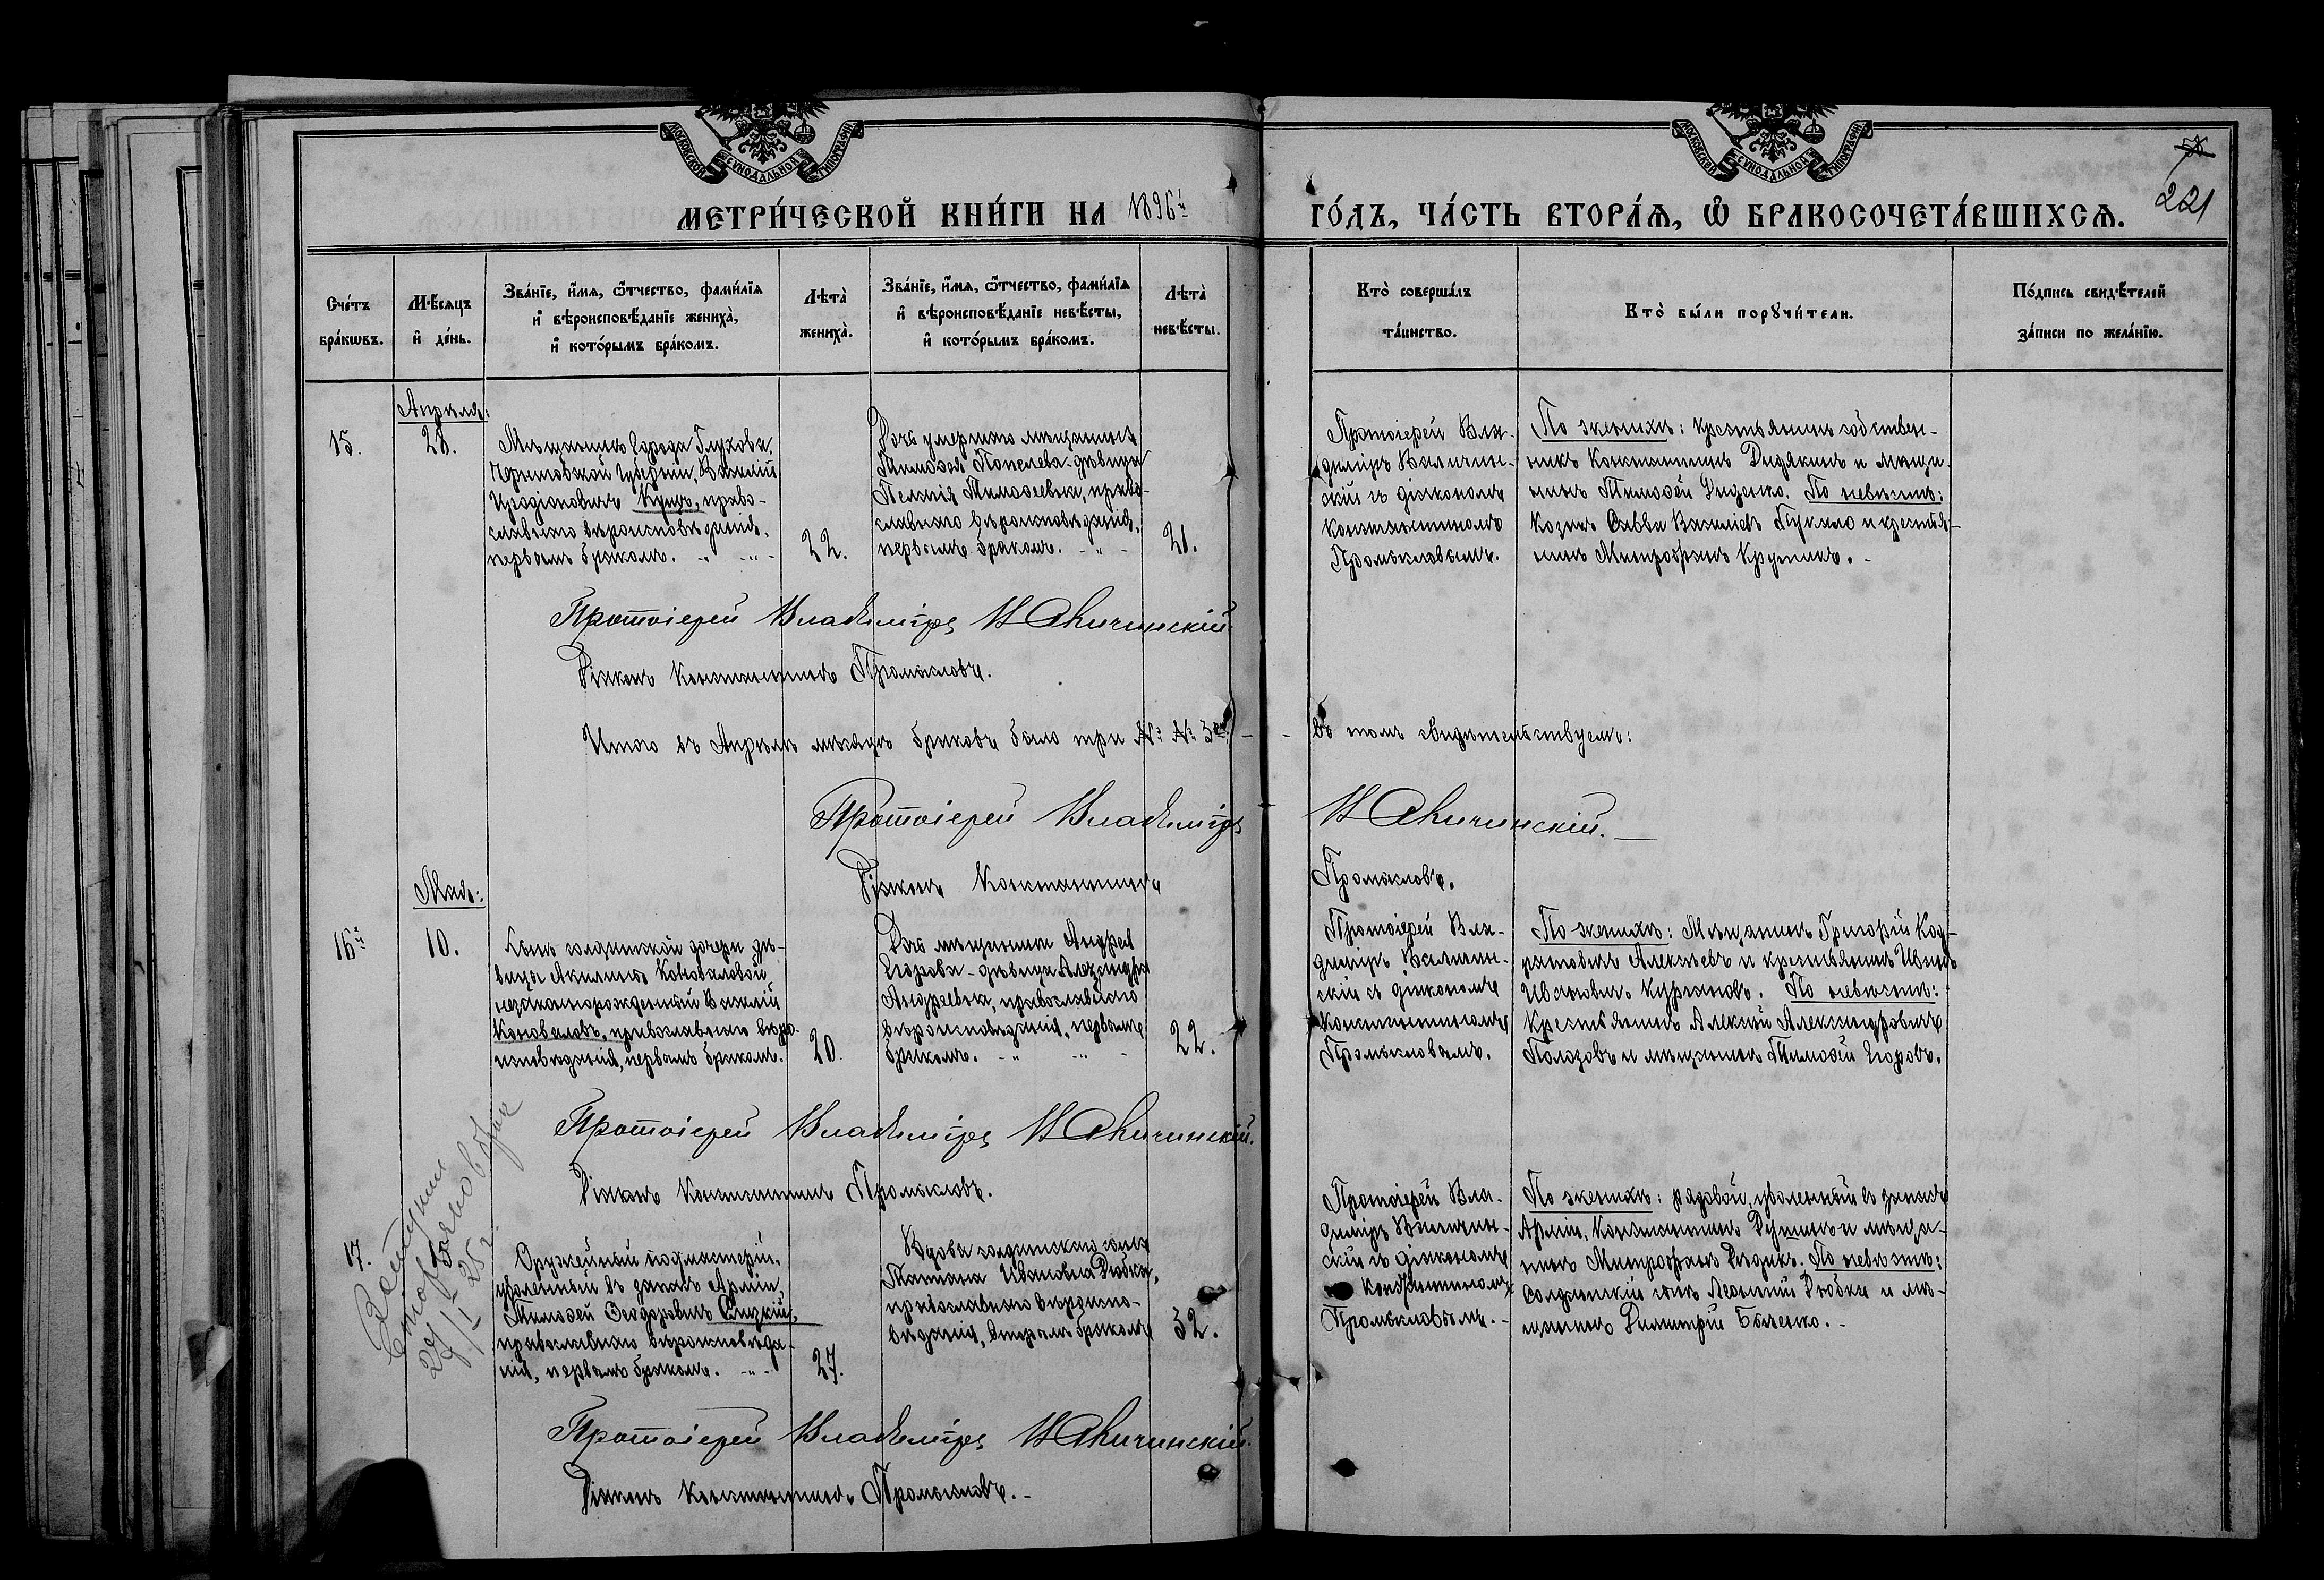 МОСКОВСКОЙ СУНОДАЛЬНОЙ ТИПОГРАФІИ
МОСКОВСКОЙ СУНОДАЛЬНОЙ ТИПОГРАФІИ
221
МЕТРИ́ЧЕСКОЙ КНИ́ГИ НА 1896й ГО́ДЪ, ЧА́СТЬ ВТОРА́Ѧ, Ѽ БРАКОСОЧЕТА́ВШИХСѦ.
Сче́тъ
бра́кѡвъ.
Мѣ́сяцъ
и҆ де́нь.
Зва́нїе, и҆́мѧ, ѻ҆́тчество, фами́лїѧ
и҆ вѣроисповѣ́данїе жениха̀,
и҆ кото́рымъ бра́комъ.
Лѣта̀
жениха̀.
Зва́нїе, и҆́мѧ, ѻ҆́тчество, фами́лїѧ
и҆ вѣроисповѣ́данїе невѣ́сты,
и҆ кото́рымъ бра́комъ.
Лѣта̀
невѣ́сты.
Кто̀ соверша́лъ
та́инство.
Кто̀ бы́ли порꙋчи́тели.
По́дпись свидѣ́телей
за́писи по жела́нїю.
Апрѣль:
15.
28.
Мѣщанинъ города Глухова,
Черниговской губерніи, Василій
Иродіоновичъ Куцъ, право-
славнаго вѣроисповѣданія,
первымъ бракомъ.
22.
Дочь умершаго мѣщанина
Тимоѳея Попелева - дѣвица
Пелагія Тимоѳеевна, право-
славнаго вѣроисповѣданія,
первымъ бракомъ.
21.
Протоіерей Вла-
диміръ
скій съ діакономъ
Константиномъ
Промысловымъ.
По женихѣ: крестьянинъ собствен-
никъ Константинъ Дидякинъ и мѣща-
нинъ Тимоѳей Диденко. По невѣстѣ:
Козакъ Савва Василіевъ и крестья-
нинъ Митрофанъ Крутикъ.
Протоіерей Владиміръ
Діаконъ Константинъ Промысловъ.
Итого въ Апрѣлѣ мѣсяцѣ браковъ было три №. №. 3. - - въ томъ свидѣтельствуемъ:
Протоіерей Владиміръ
Діаконъ Константинъ Промысловъ.
Май:
16й
10.
Сынъ солдатской дочери дѣ-
вицы Акилины Коноваловой
незаконорожденный Василій
Коноваловъ, православнаго вѣро-
исповѣданія, первымъ бракомъ.
20.
Дочь мѣщанина Андрея
Егорова - дѣвица Александра
Андреевна, православнаго
вѣроисповѣданія, первымъ
бракомъ.
22.
Протоіерей Вла-
диміръ
скій съ діакономъ
Константиномъ
Промысловымъ.
По женихѣ: Мѣщанинъ Григорій Код-
ратовичъ Алексѣевъ и крестьянинъ Иванъ
Ивановичъ Курзановъ. По невѣстѣ:
Крестьянинъ Алексѣй Александровичъ
Полозовъ и мѣщанинъ Тимоѳей Егоровъ.
Протоіерей Владиміръ
Діаконъ Константинъ Промысловъ.
17.
Оружейный подмастерій,
уволенный въ запасъ Арміи,
Тимоѳей Ѳеодоровичъ Слуцкій,
православнаго вѣроисповѣда-
нія, первымъ бракомъ.
27.
Вдова солдатскаго сына
Татіана Ивановна Дюбка,
православнаго вѣроиспо-
вѣданія, вторымъ бракомъ
32.
Протоіерей Вла-
диміръ
скій съ діакономъ
Константиномъ
Промысловымъ.
По женихѣ: рядовой, уволенный въ запасъ
Арміи, Константинъ и мѣща-
нинъ Митрофанъ Дядикъ. По невѣстѣ:
Солдатскій сынъ Леонтій Дюбка и мѣ-
щанинъ Димитрій Баченко.
Протоіерей Владиміръ
Діаконъ Константинъ Промысловъ.